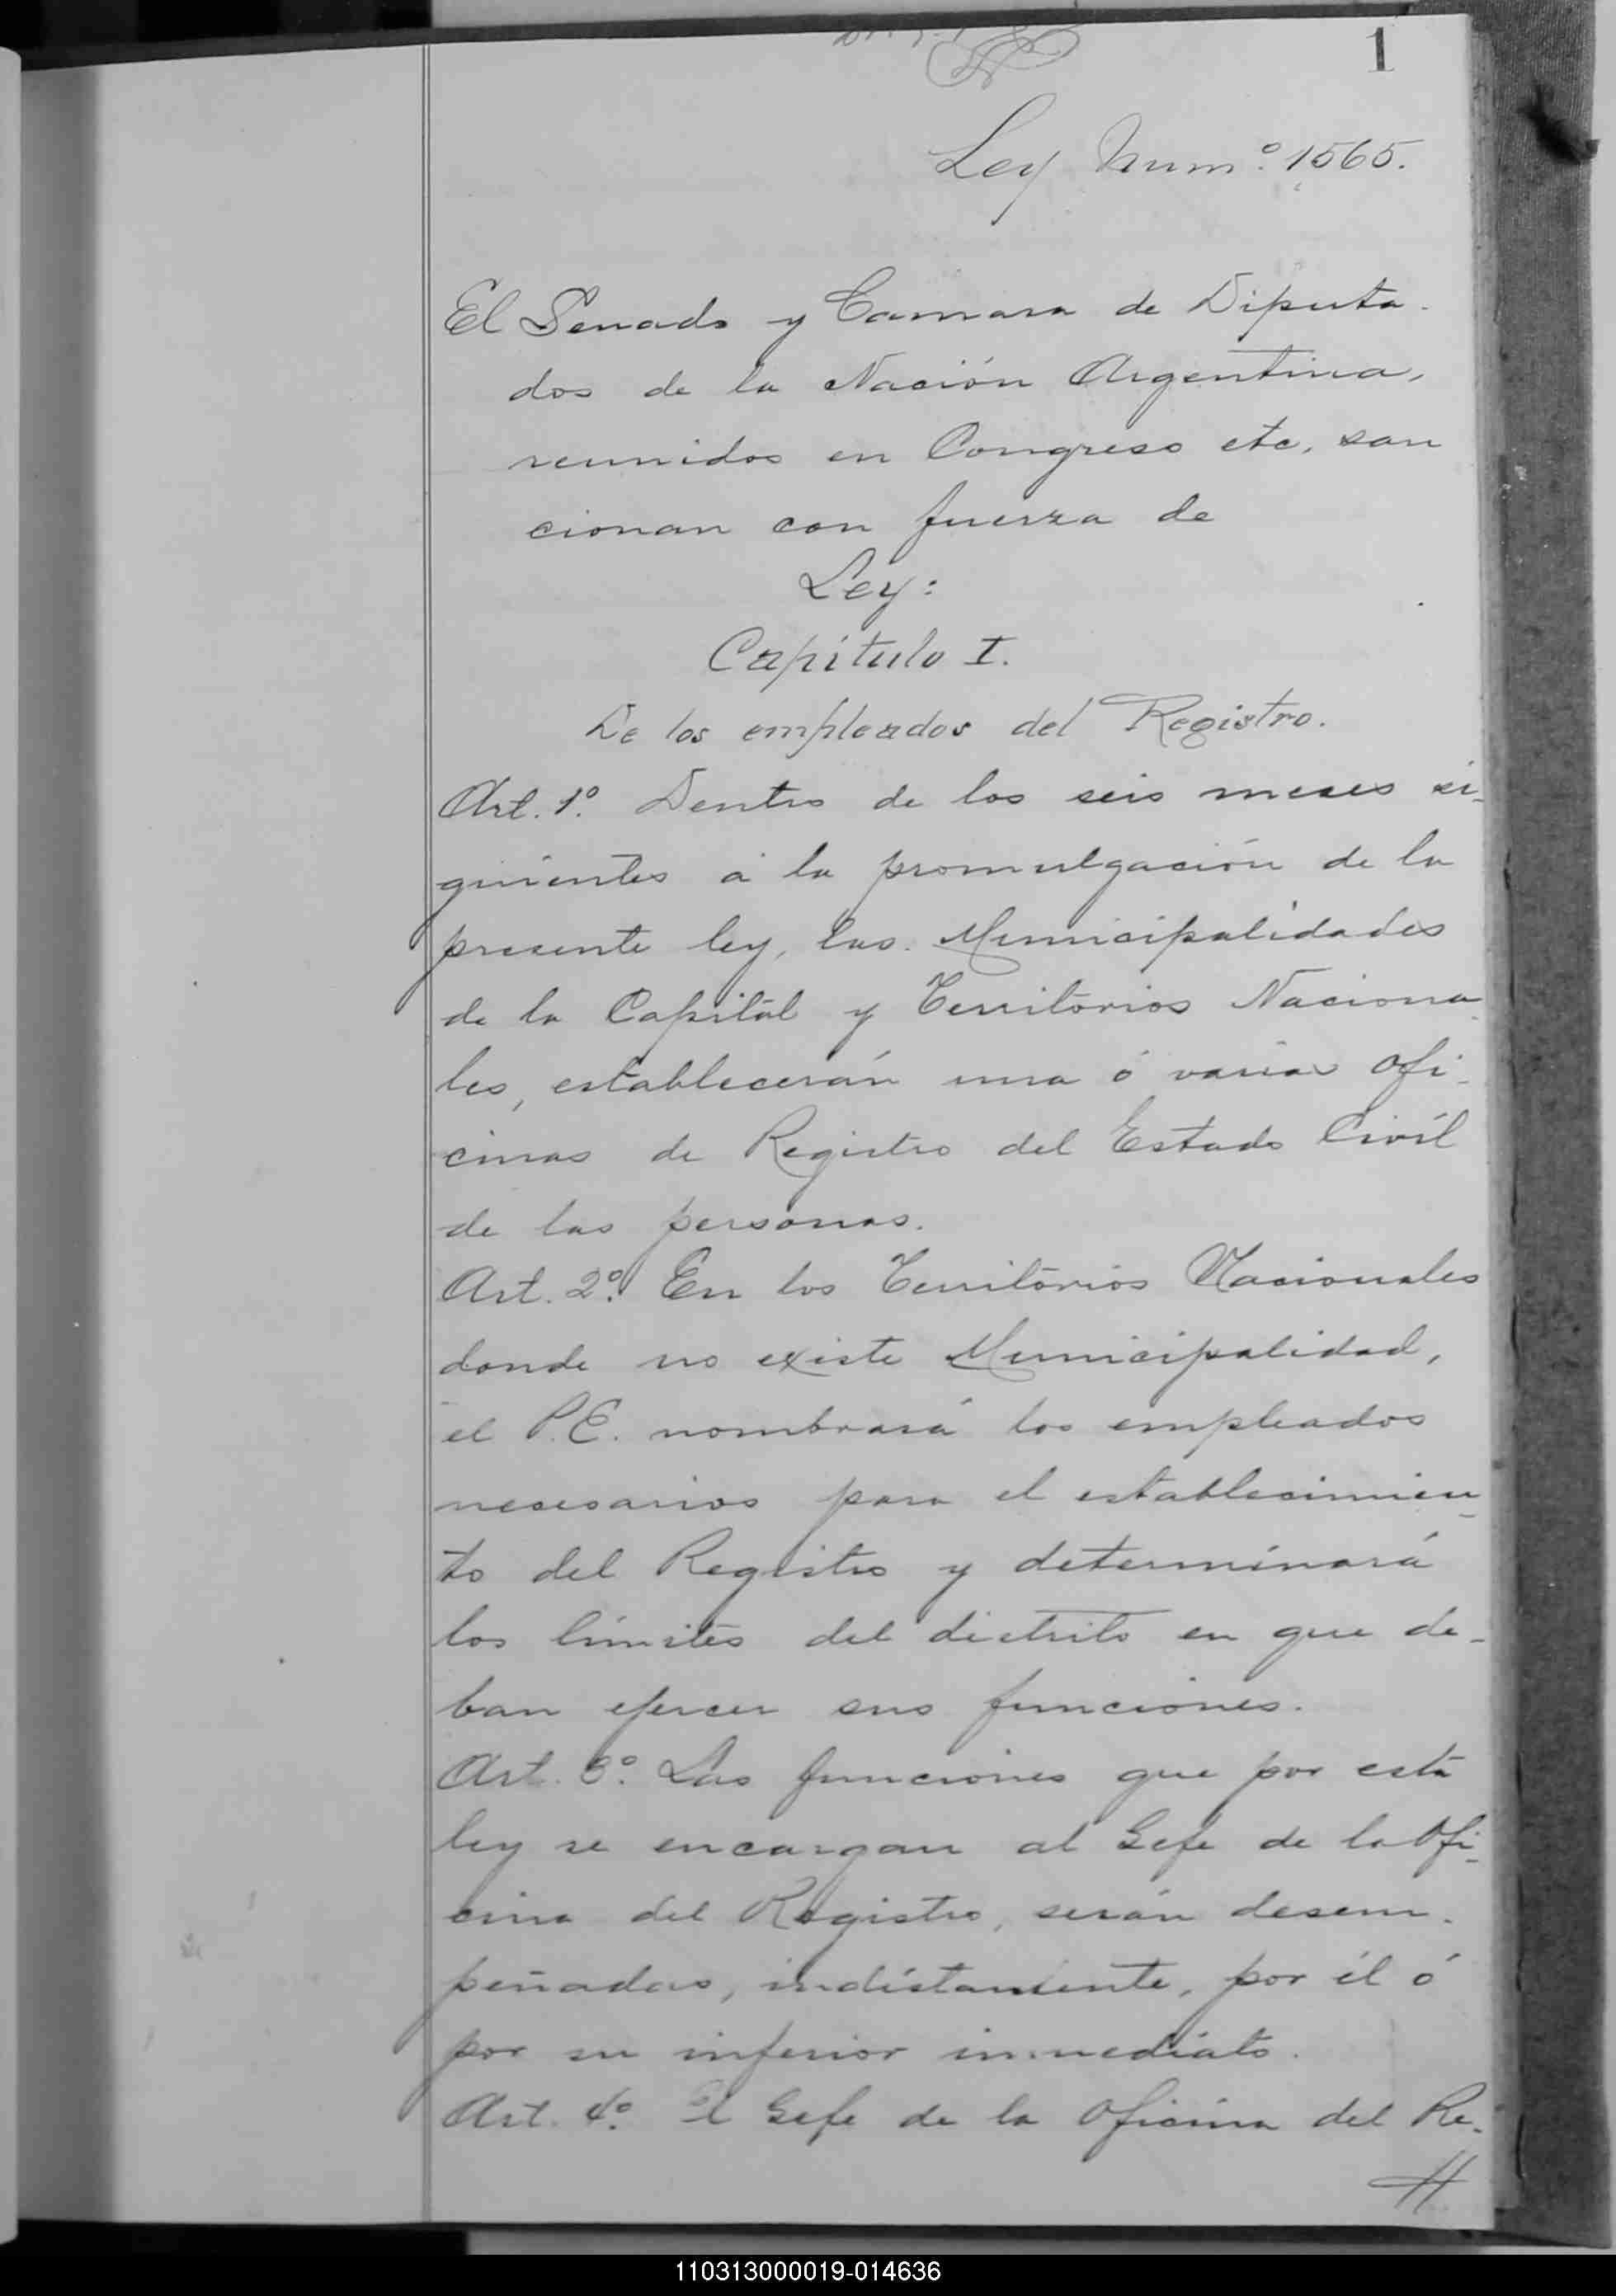 1
Ley Num.º 1565.
El Senado y Camara de Diputa-
dos de la Nación Argentina,
reunidos en Congreso etc, san
cionan con fuerza de
Ley:
Capítulo I.
De los empleados del Registro.
Art. 1º. Dentro de los seis meses si-
guientes á la promulgación de la
presente ley, las Municipalidades
de la Capital y Territorios Naciona-
les, establecerán una ó varias ofi-
cinas de Registro del Estado Civil
de las personas.
Art. 2º. En los Territorios Nacionales
donde no existe Municipalidad,
el P.E. nombrará los empleados
necesarios para el establecimien-
to del Registro y determinará
los límites del distrito en que de-
ban ejercer sus funciones.
Art. 3º. Las funciones que por esta
ley se encargan al Gefe de la Ofi-
cina del Registro, serán desem-
peñadas, indistamente, por él ó
por su inferior inmediato.
Art. 4º. El Gefe de la Oficina del Re-
110313000019-014636